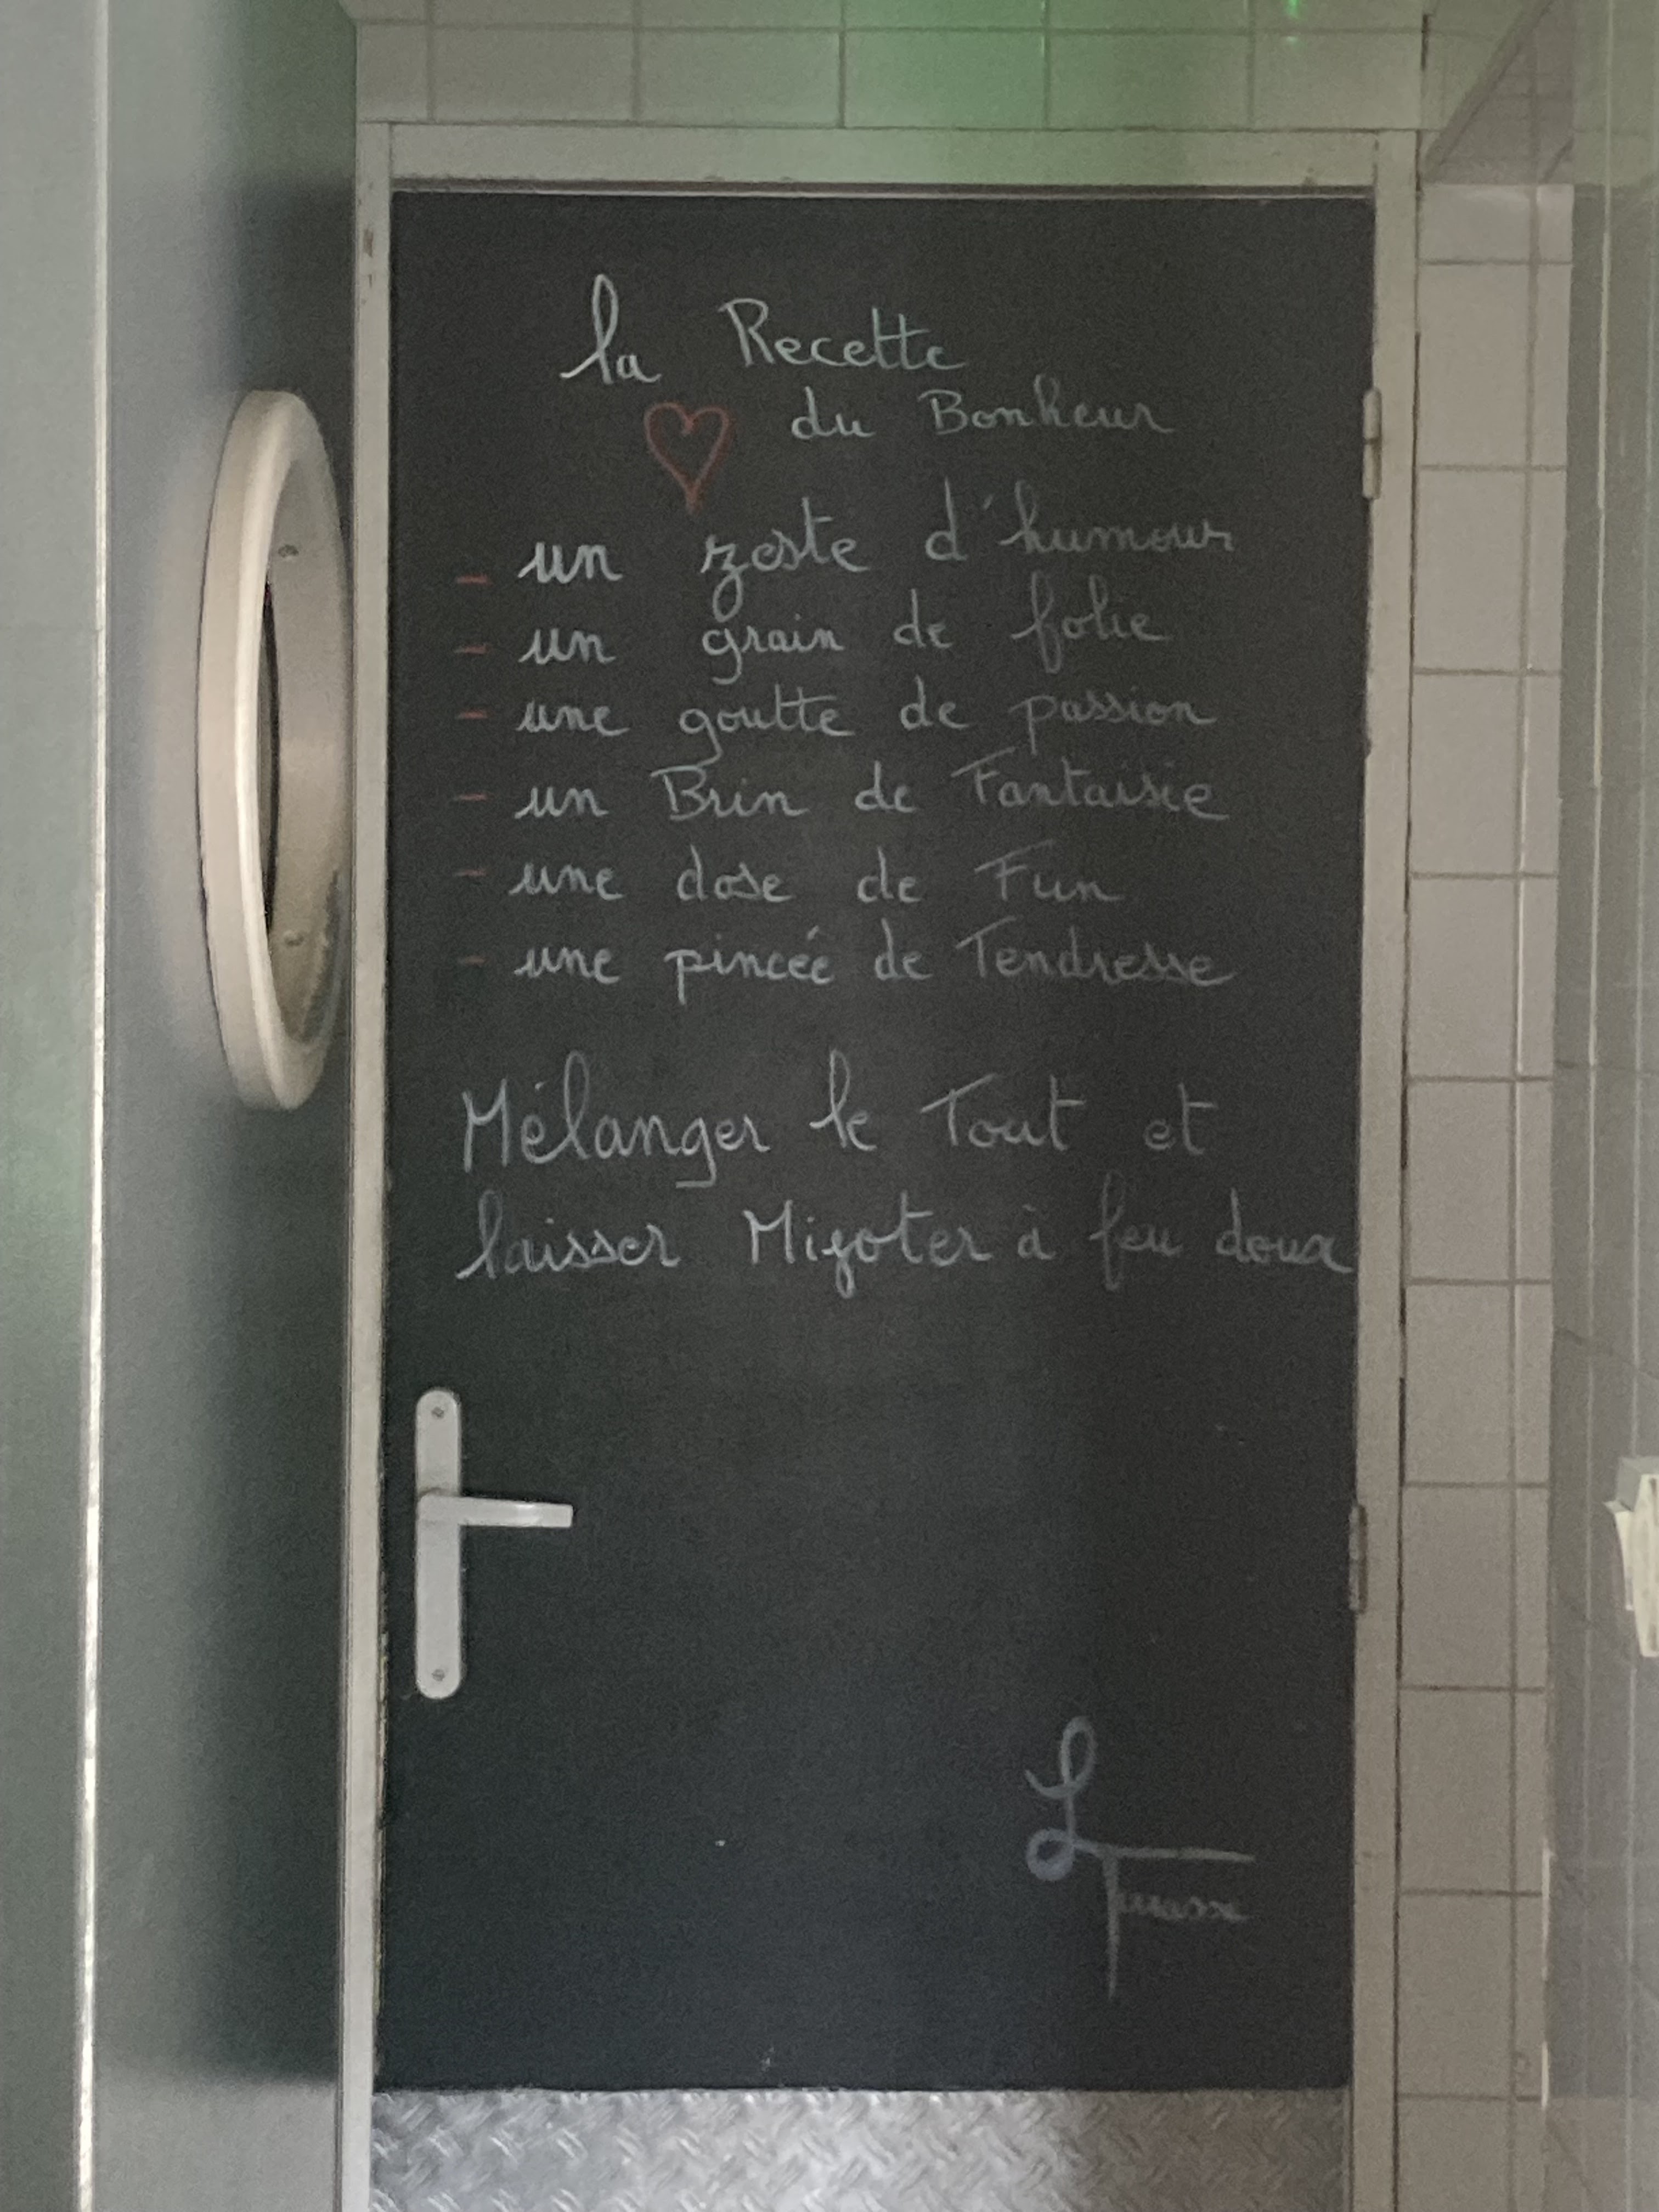 la Recette
du Bonheur
- un zeste d'humour
- un grain de folie
- une goutte de passion
- un Brin de Fantaisie
- une dose de Fun
- une pincée de Tendresse
Mélanger le Tout et
laisser Mijoter à feu doux
L
Terrasse